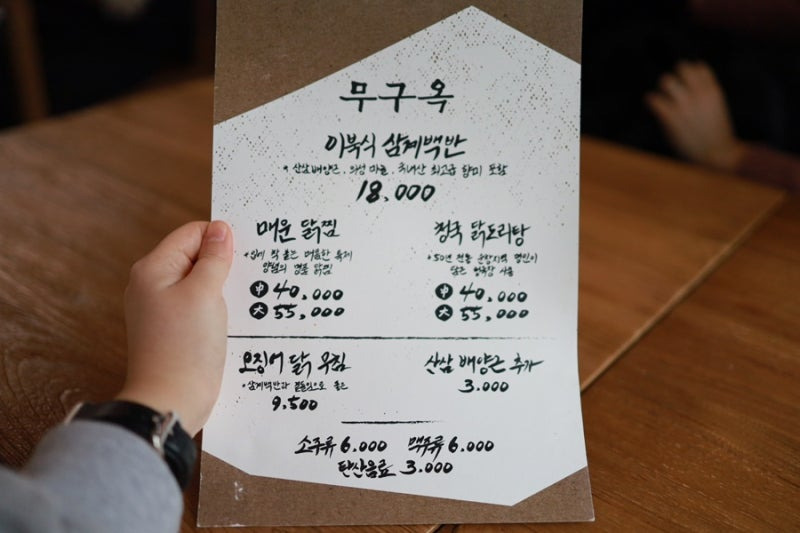 무구옥
이북식 삼계백반
* 산삼배양근, 의성마늘, 국내산 최고급 향미 포함
18,000
매운 닭찜
* 입에 착 붙은 매콤한 특제
양념의 명품 닭찜
中 40,000
大 55,000
청국 닭도리탕
* 50년 전통 순창지역 명인이
담근 청국장 사용
中 40,000
大 55,000
오징어 닭 무침
* 삼계백반과 곁들임으로 좋은
9,500
산삼 배양근 추가
3,000
소주류 6,000 맥주류 6,000
탄산음료 3,000